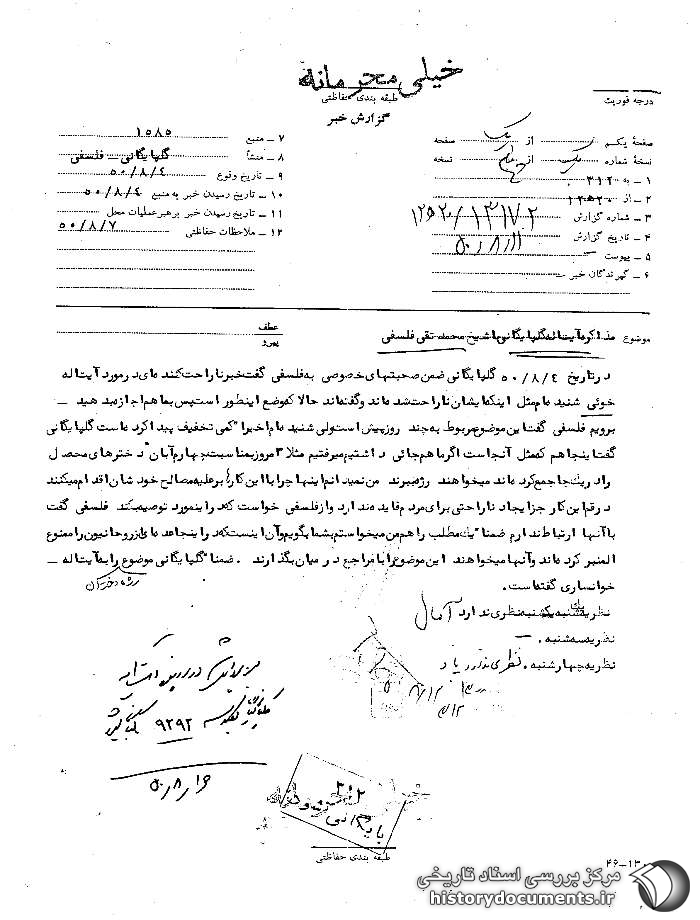 خیلی محرمانه
طبقه بندی حفاظتی
گزارش خبر
درجه فوریت
صفحهٔ یکم از یک صفحه
نسخهٔ شماره یک از چهار نسخه
۱ – به ۳۱۲
۲ – از ۱۲ ه ۲۰
۳ – شماره گزارش ۱۲ه۲۰/۱۳۱۷۲
۴ – تاریخ گزارش ۵۰/۸/۱۱
۵ – پیوست –
۶ – گیرندگان خبر
۷ – منبع ۱۵۸۵
۸ – منشأ گلپایگانی – فلسفی
۹ – تاریخ وقوع ۵۰/۸/۴
۱۰ – تاریخ رسیدن خبر به منبع ۵۰/۸/۴
۱۱ – تاریخ رسیدن خبر به رهبر عملیات محل
۱۲ – ملاحظات حفاظتی ۵۰/۸/۷
موضوع مذاکره آیت اله گلپایگانی با شیخ محمد تقی فلسفی
عطف
پیرو
در تاریخ ۵۰/۸/۴ گلپایگانی ضمن صحبتهای خصوصی به فلسفی گفت خبر ناراحت کننده ای در مورد آیت اله
خوئی شنیده ام مثل اینکه ایشان ناراحت شده اند و گفته اند حالا که وضع اینطور است پس بما هم اجازه بدهید –
برویم فلسفی گفت این موضوع مربوط به چند روز پیش است ولی شنیده ام اخیرا" کمی تخفیف پیدا کرده است گلپایگانی
گفت اینجا هم که مثل آنجا است اگر ما هم جائی داشتیم میرفتیم مثلا ۳ روز بمناسبت چهارم آبان" دخترهای محصل
را در یکجا جمع کرده اند میخواهند رژه ببرند من نمیدانم اینها چرا با این کار" بر علیه مصالح خودشان اقدام میکنند
در قم این کار جز ایجاد ناراحتی برای مردم فایده ندارد و از فلسفی خواست که در اینمورد توصیه بکند فلسفی گفت
با آنها ارتباط ندارم ضمنا" یک مطلب را هم من میخواستم بشما بگویم و آن اینست که در اینجا عده ای از روحانیون را ممنوع
المنبر کرده اند و آنها میخواهند این موضوع را با مراجع در میان بگذارند . ضمنا" گلپایگانی موضوع رژه دختران را به آیت اله –
خوانساری گفته است .
نظریه یکشنبه نظری ندارد آمال
نظریه سه شنبه . –
نظریه چهارشنبه . نظری ندارد
۹۲۹۲
۵۰/۸/۱۶
بایگانی شود
طبقه بندی حفاظتی
۴۶–۱۳
مرکز بررسی اسناد تاریخی
historydocuments.ir